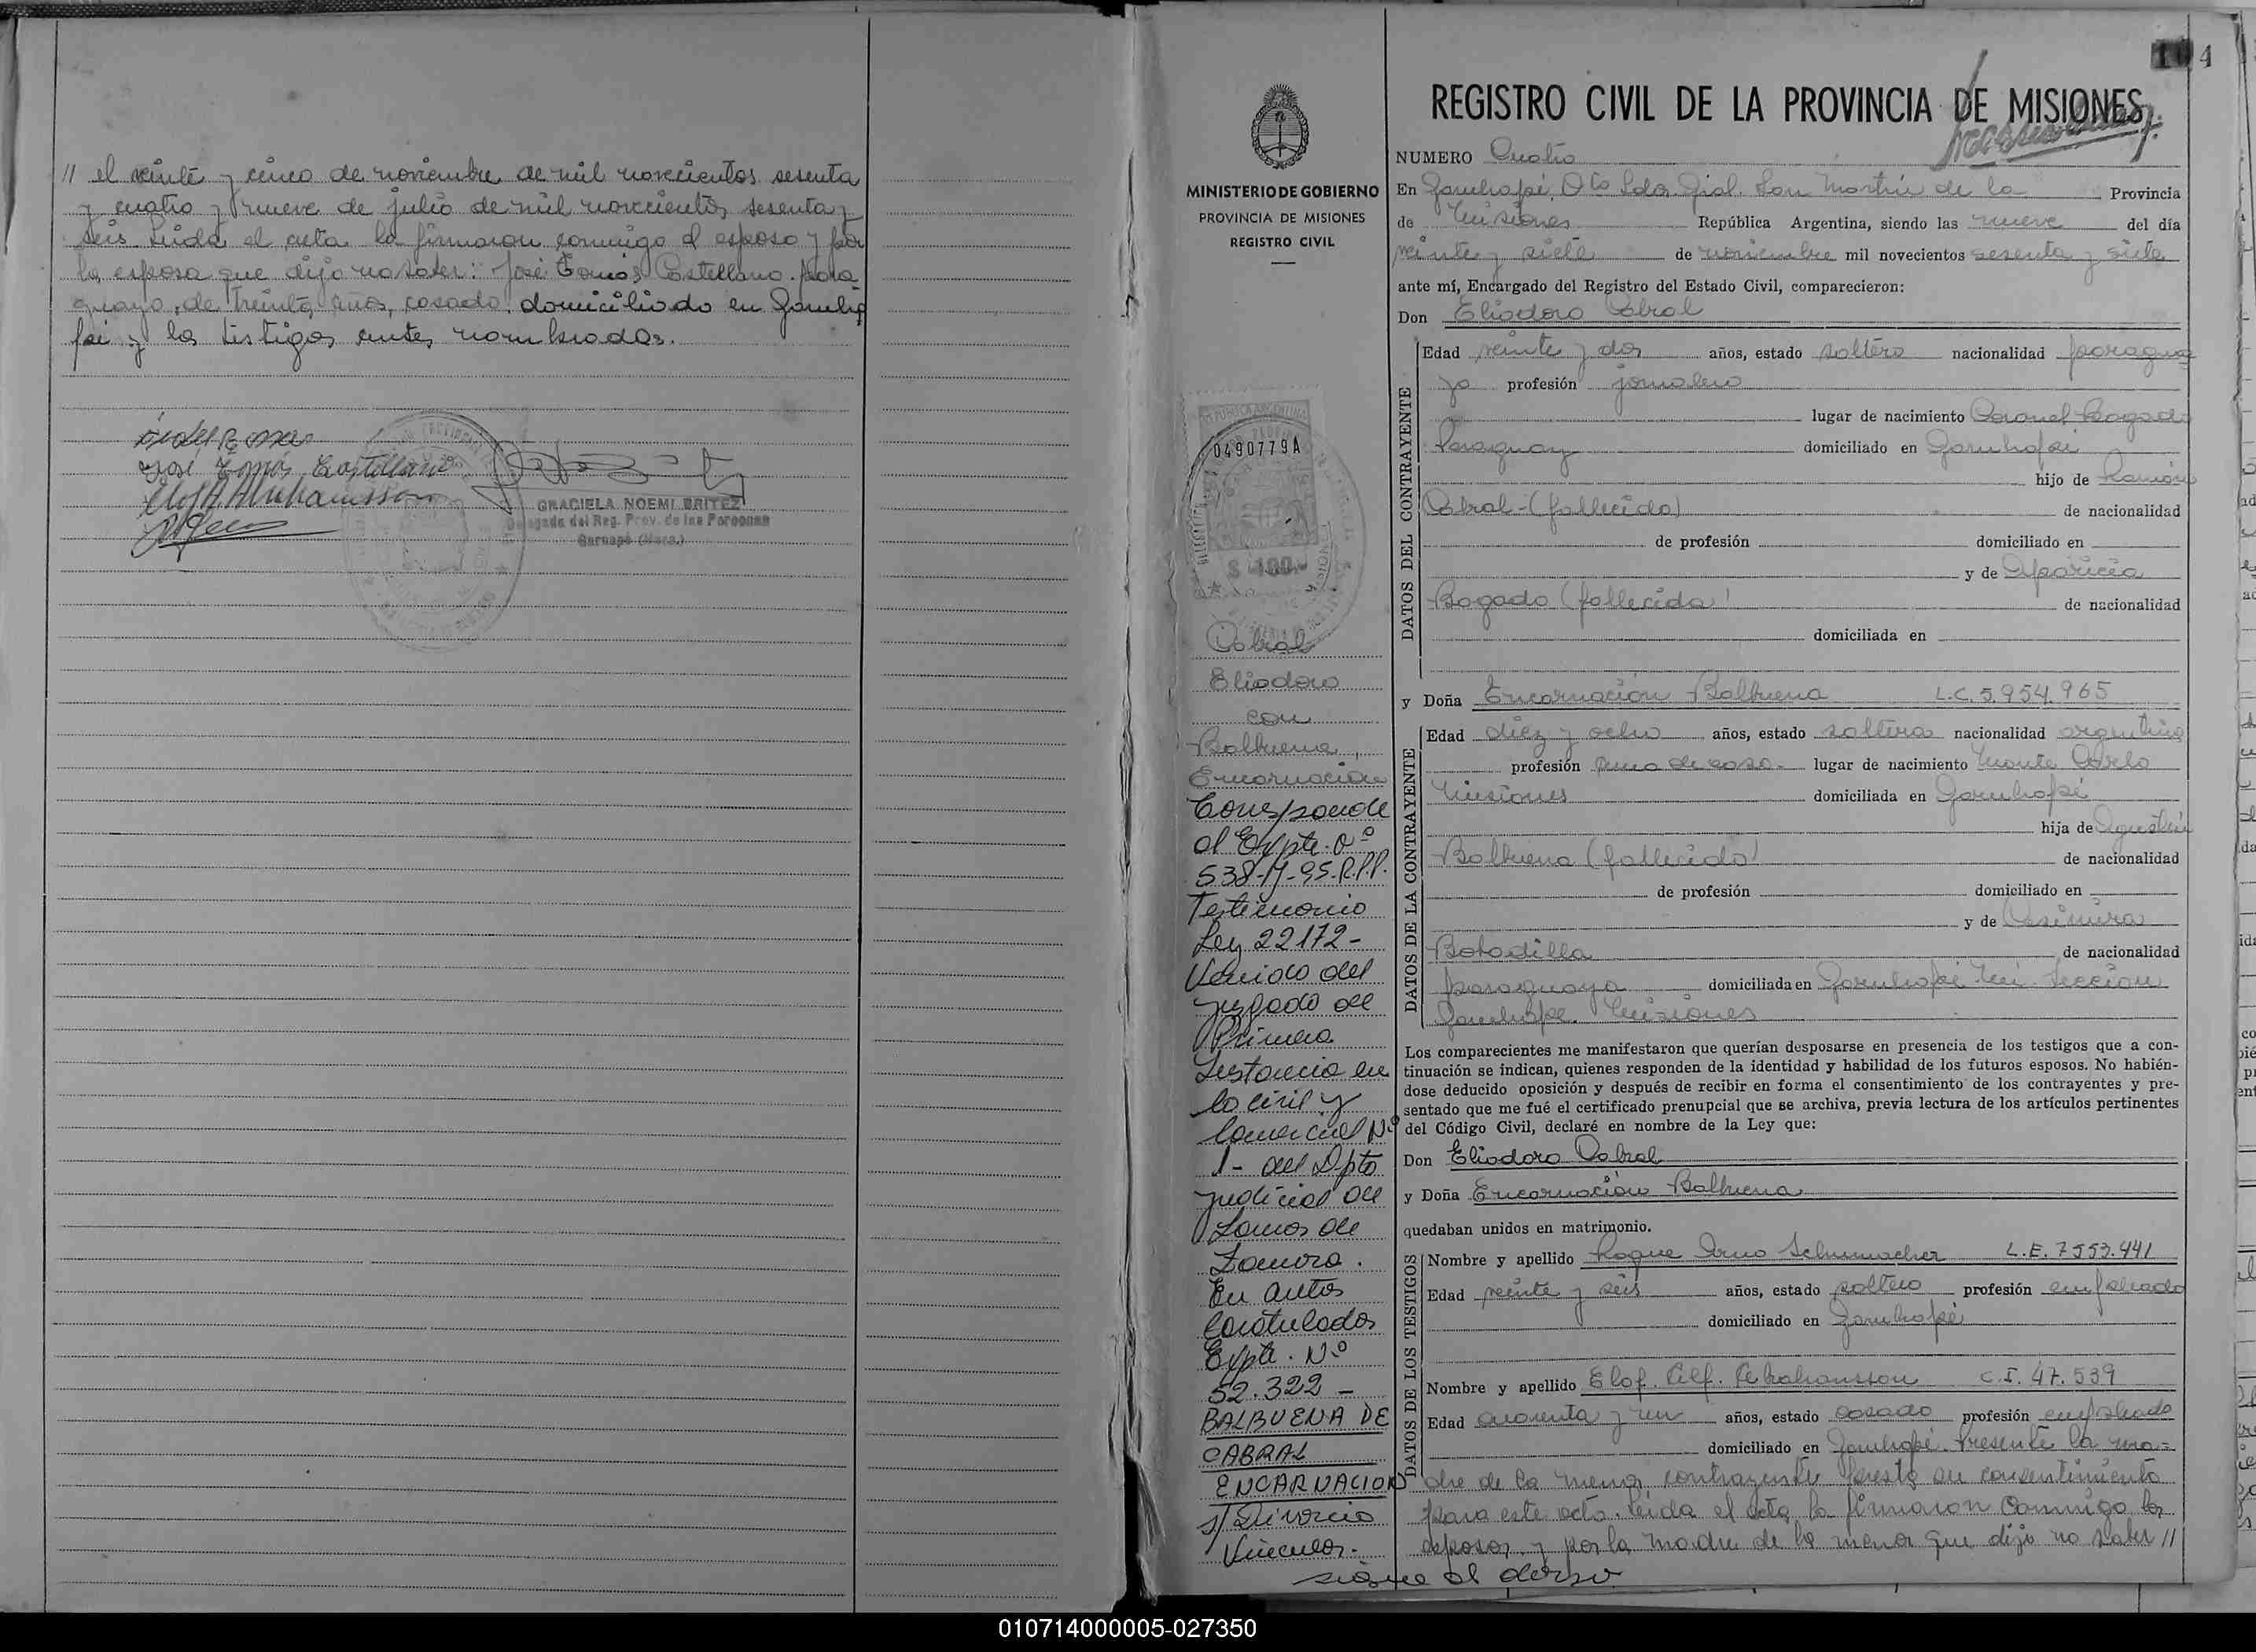 // el veinte y cinco de noviembre de mil novecientos sesenta
y cuatro y nueve de julio de mil novecientos sesenta y
seis Leida el acta la firmaron conmigo el esposo y por
la esposa que dijo no saber: José Tomás Castellano. para
guayo, de treinta años, casado, domiciliado en Garuha
pé y los testigos antes nombrados.
José Tomás Castellano
GRACIELA NOEMI BRITEZ
Delegada del Reg. Prov. de las Personas
Garuapé (Mnes.)
4
REGISTRO CIVIL DE LA PROVINCIA DE MISIONES
MINISTERIO DE GOBIERNO
PROVINCIA DE MISIONES
REGISTRO CIVIL
0490779A
$ 100
Cabral
Eliodoro
con
Balbuena,
Encarnación
Corresponde
al Expte. Nº
538-M-95-R.P.P.
Testimonio
Ley 22172-
Venido del
juzgado de
Primera
Instancia en
lo civil y
Comercial Nº
1- del Dpto
judicial de
Lomas de
Zamora.
En autos
Caratulados
Expte. Nº
52.322 -
BALBUENA DE
CABRAL
ENCARNACION
s/ Divorcio
Vincular.
NUMERO Cuatro
En Garuhapé, Dto Ldor. Gral. San Martín de la Provincia
de Misiones República Argentina, siendo las nueve del día
veinte y siete de noviembre mil novecientos sesenta y siete
ante mí, Encargado del Registro del Estado Civil, comparecieron:
Don Eliodoro Cabral
DATOS DEL CONTRAYENTE
Edad veinte y dos años, estado soltero nacionalidad paragua
yo profesión jornalero
lugar de nacimiento Coronel Bogado
Paraguay domiciliado en Garuhapé
hijo de Ramón
Cabral - (fallecido) de nacionalidad
de profesión domiciliado en
y de Aparicia
Bogado (fallecida) de nacionalidad
domiciliada en
y Doña Encarnación Balbuena L.C. 5.954.965
DATOS DE LA CONTRAYENTE
Edad diez y ocho años, estado soltera nacionalidad argentina
profesión ama de casa - lugar de nacimiento Monte Carlo
Misiones domiciliada en Garuhapé
hija de Agustín
Balbuena (fallecido) de nacionalidad
de profesión domiciliado en
y de Casimira
Bobadilla de nacionalidad
paraguaya domiciliada en Garuhapé Mí. Sección
Garuhapé. Misiones
Los comparecientes me manifestaron que querían desposarse en presencia de los testigos que a con-
tinuación se indican, quienes responden de la identidad y habilidad de los futuros esposos. No habién-
dose deducido oposición y después de recibir en forma el consentimiento de los contrayentes y pre-
sentado que me fué el certificado prenupcial que se archiva, previa lectura de los artículos pertinentes
del Código Civil, declaré en nombre de la Ley que:
Don Eliodoro Cabral
y Doña Encarnación Balbuena
quedaban unidos en matrimonio.
DATOS DE LOS TESTIGOS
Nombre y apellido Roque Arno Schumacher L.E. 7553.441
Edad veinte y seis años, estado soltero profesión empleado
domiciliado en Garuhapé
Nombre y apellido Elof. Alf. Abrahansson C.I. 47.539
Edad cuarenta y un años, estado casado profesión empleado
domiciliado en Garuhapé. Presente la ma-
dre de la menor contrayente presta su consentimiento
para este acto. Leida el acta la firmaron conmigo los
esposos. y por la madre de la menor que dijo no saber //
sigue al dorso
010714000005-027350